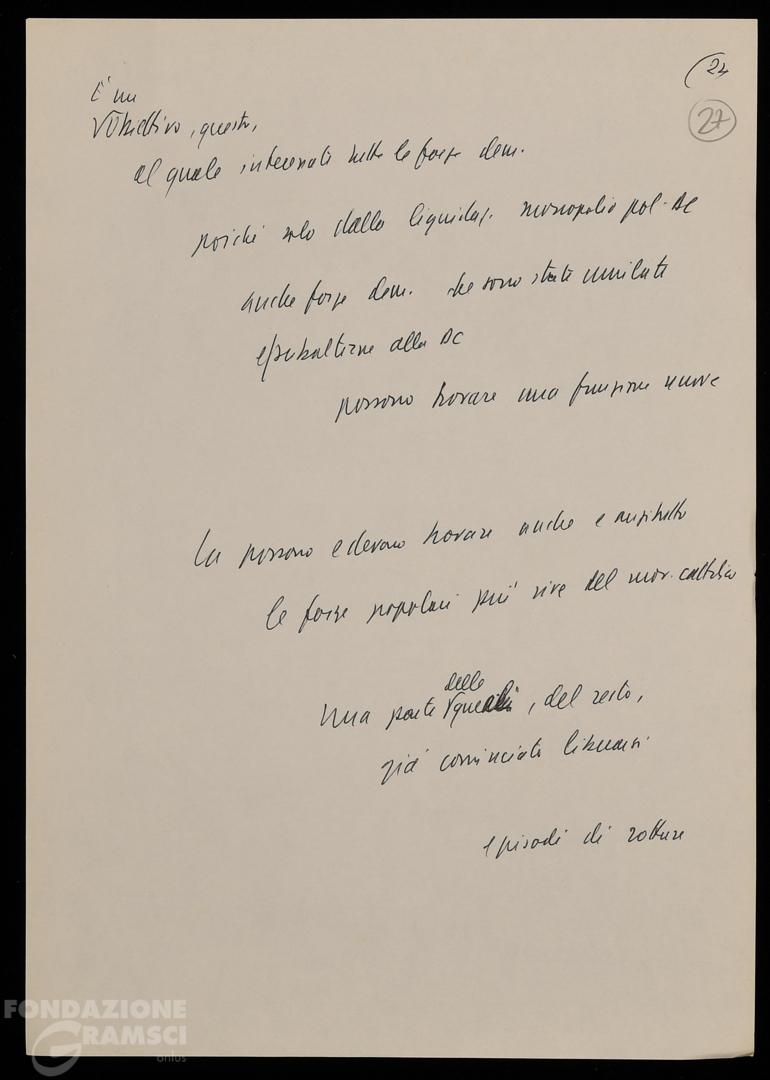 24
27
È un
Obiettivo, questo,
al quale interessati tutte le forze dem.
poiché solo dalla liquidaz. monopolio pol. DC
anche forze dem. che sono state umiliate
e subalterne alla DC
possono trovare una funzione nuova
La possono e devono trovare anche e anzitutto
le forze popolari più vive del mov. cattolico
delle
Una parte quali, del resto,
già cominciato liberarsi
episodi di rottura
FONDAZIONE
GRAMSCI
onlus